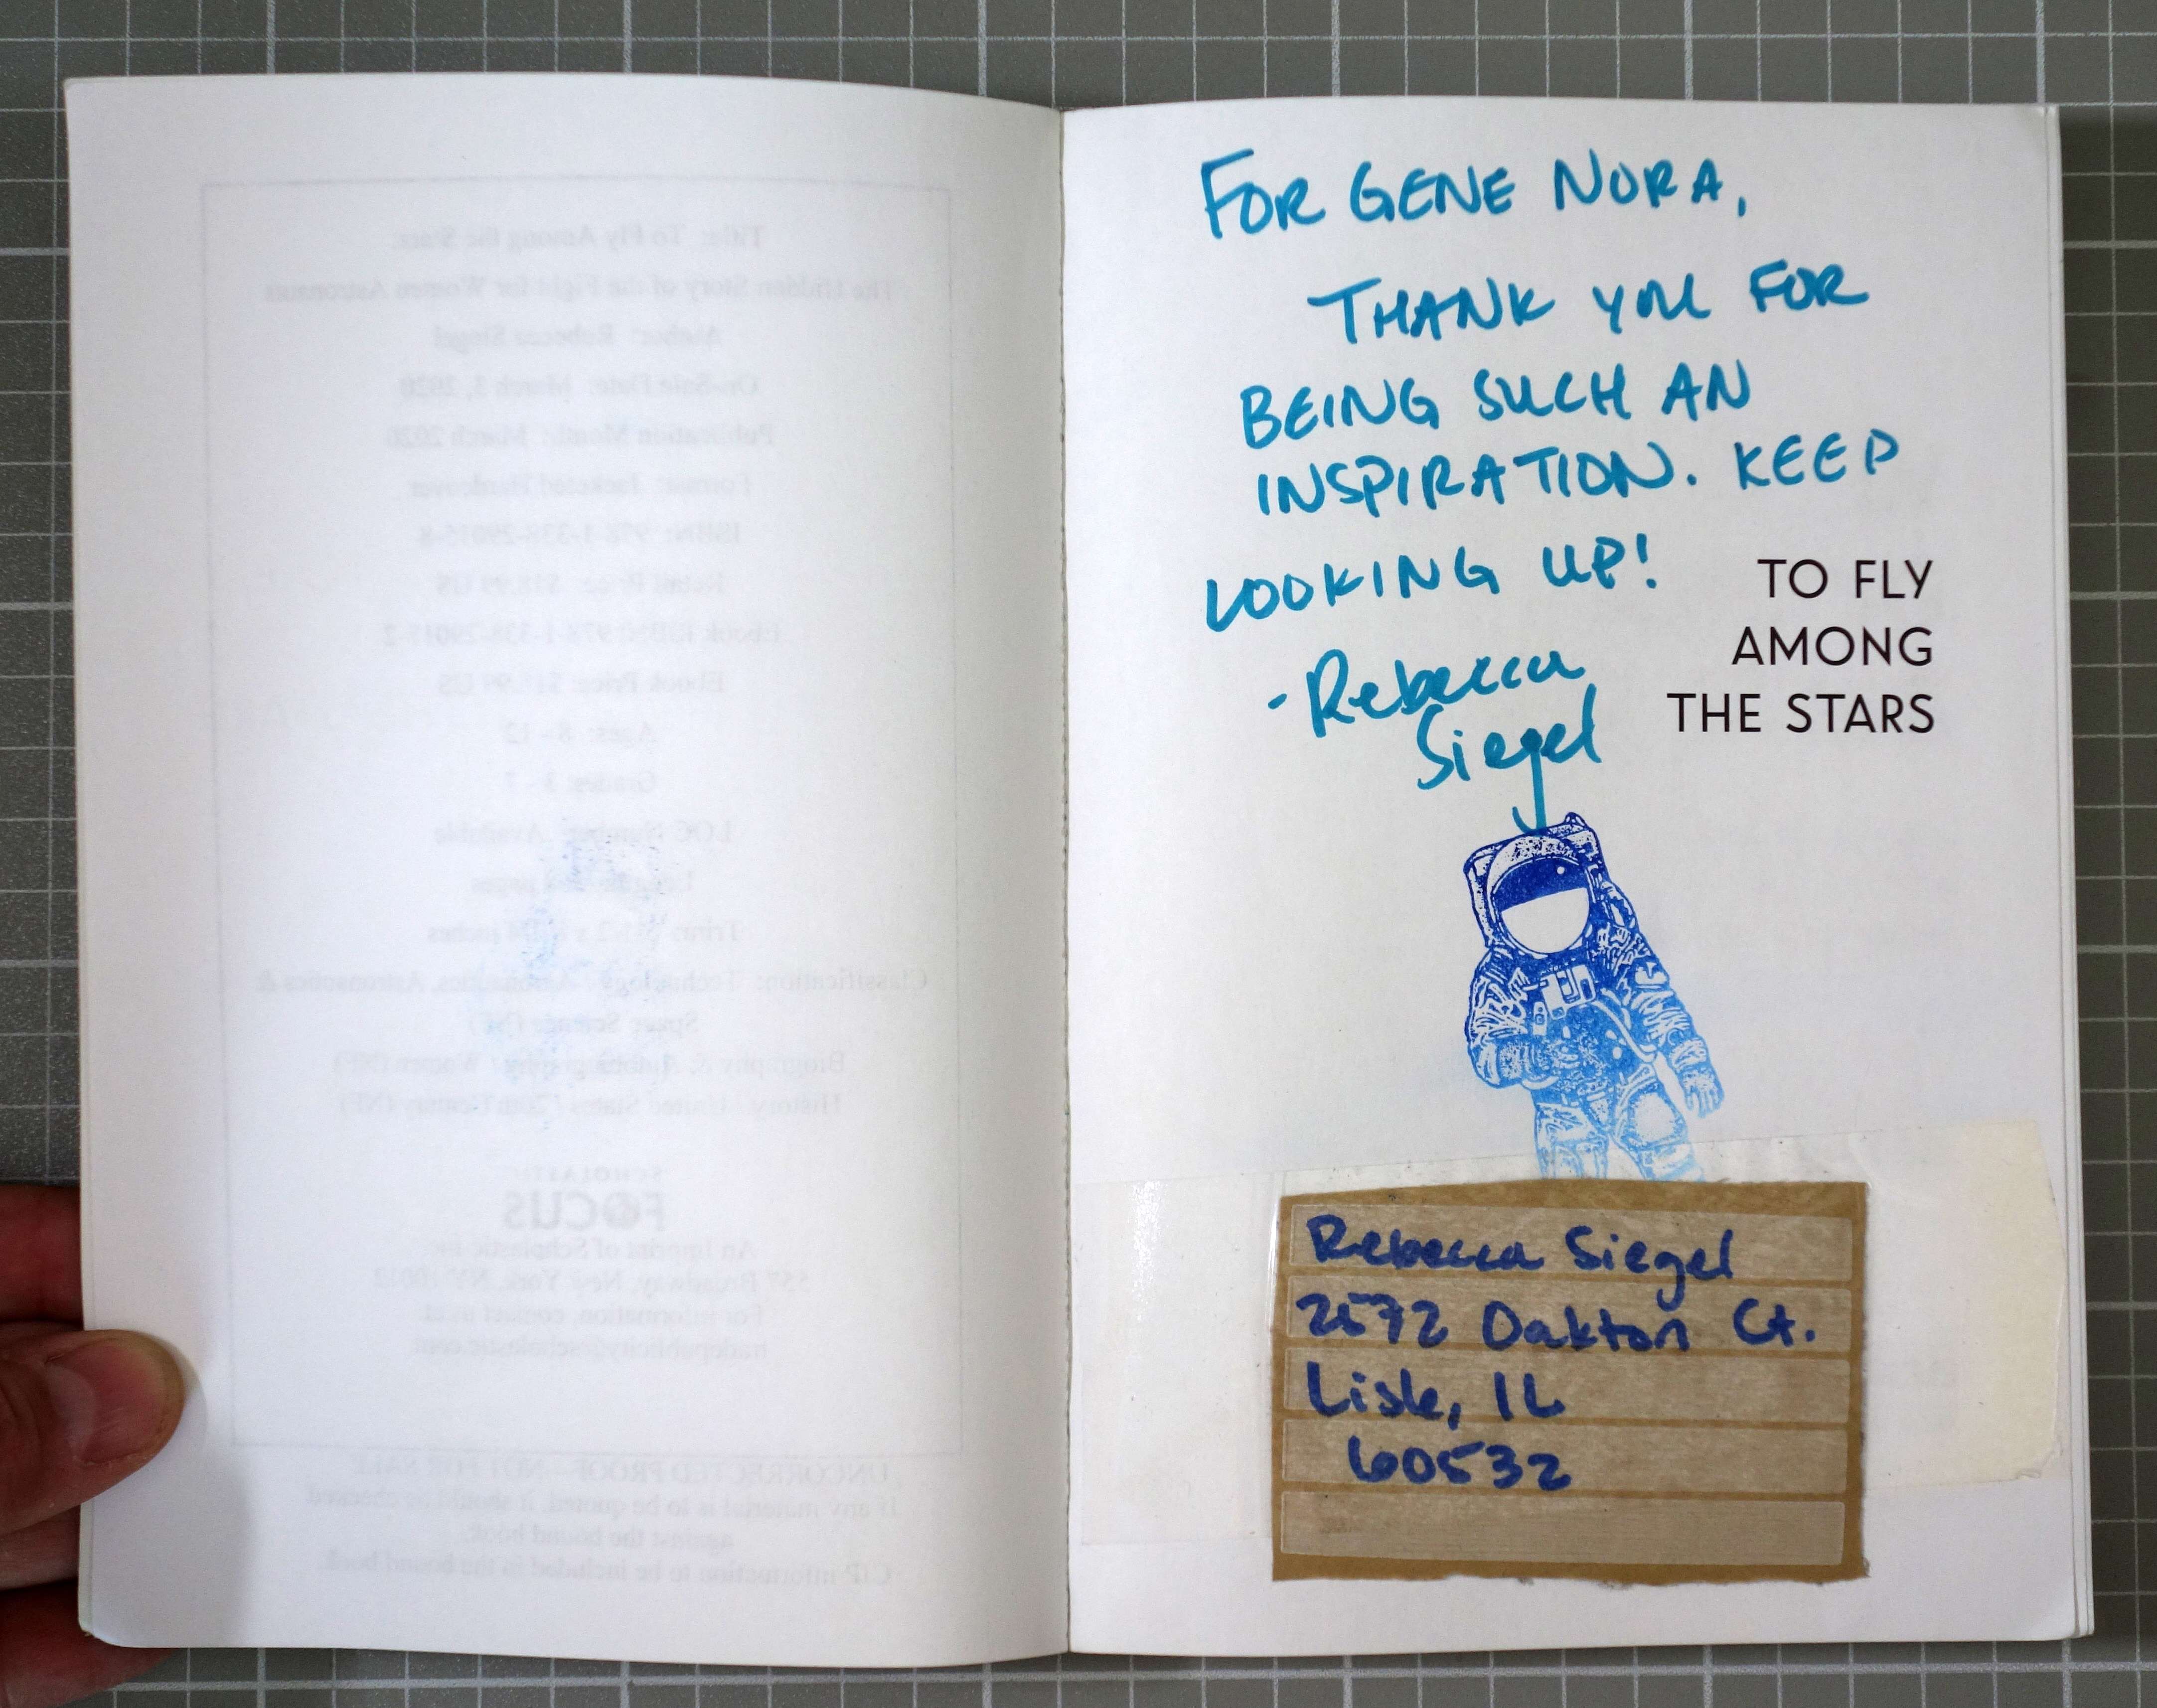 Title: To Fly Among the Stars:
The Hidden Story of the Fight for Women Astronauts
Author: Rebecca Siegel
On-Sale Date: March 3, 2020
Publication Month: March 2020
Format: Jacketed Hardcover
ISBN: 978-1-338-29015-8
Retail Price: $18.99 US
Ebook ISBN: 978-1-338-29017-2
Ebook Price: US
Ages: 8 - 12
Grades: 3 - 7
LOC Number: Available
pages
Trim: inches
Classification: Technology / Aeronautics, Astronautics &
Space Science (NF)
Biography & Autobiography / Women (NF)
History / United States / 20th Century (NF)
SCHOLASTIC
FOCUS
An Imprint of Scholastic Inc.
557 Broadway, New York, NY 10012
For information, contact us at:
tradepublicity@scholastic.com
UNCORRECTED PROOF - NOT FOR SALE
If any material is to be quoted, it should be checked
against the bound book.
CIP information to be included in the bound book.
FOR GENE NORA,
THANK YOU FOR
BEING SUCH AN
INSPIRATION. KEEP
LOOKING UP!
- Rebecca
Siegel
TO FLY
AMONG
THE STARS
Rebecca Siegel
2572 Oakton Ct.
Lisle, IL
60532